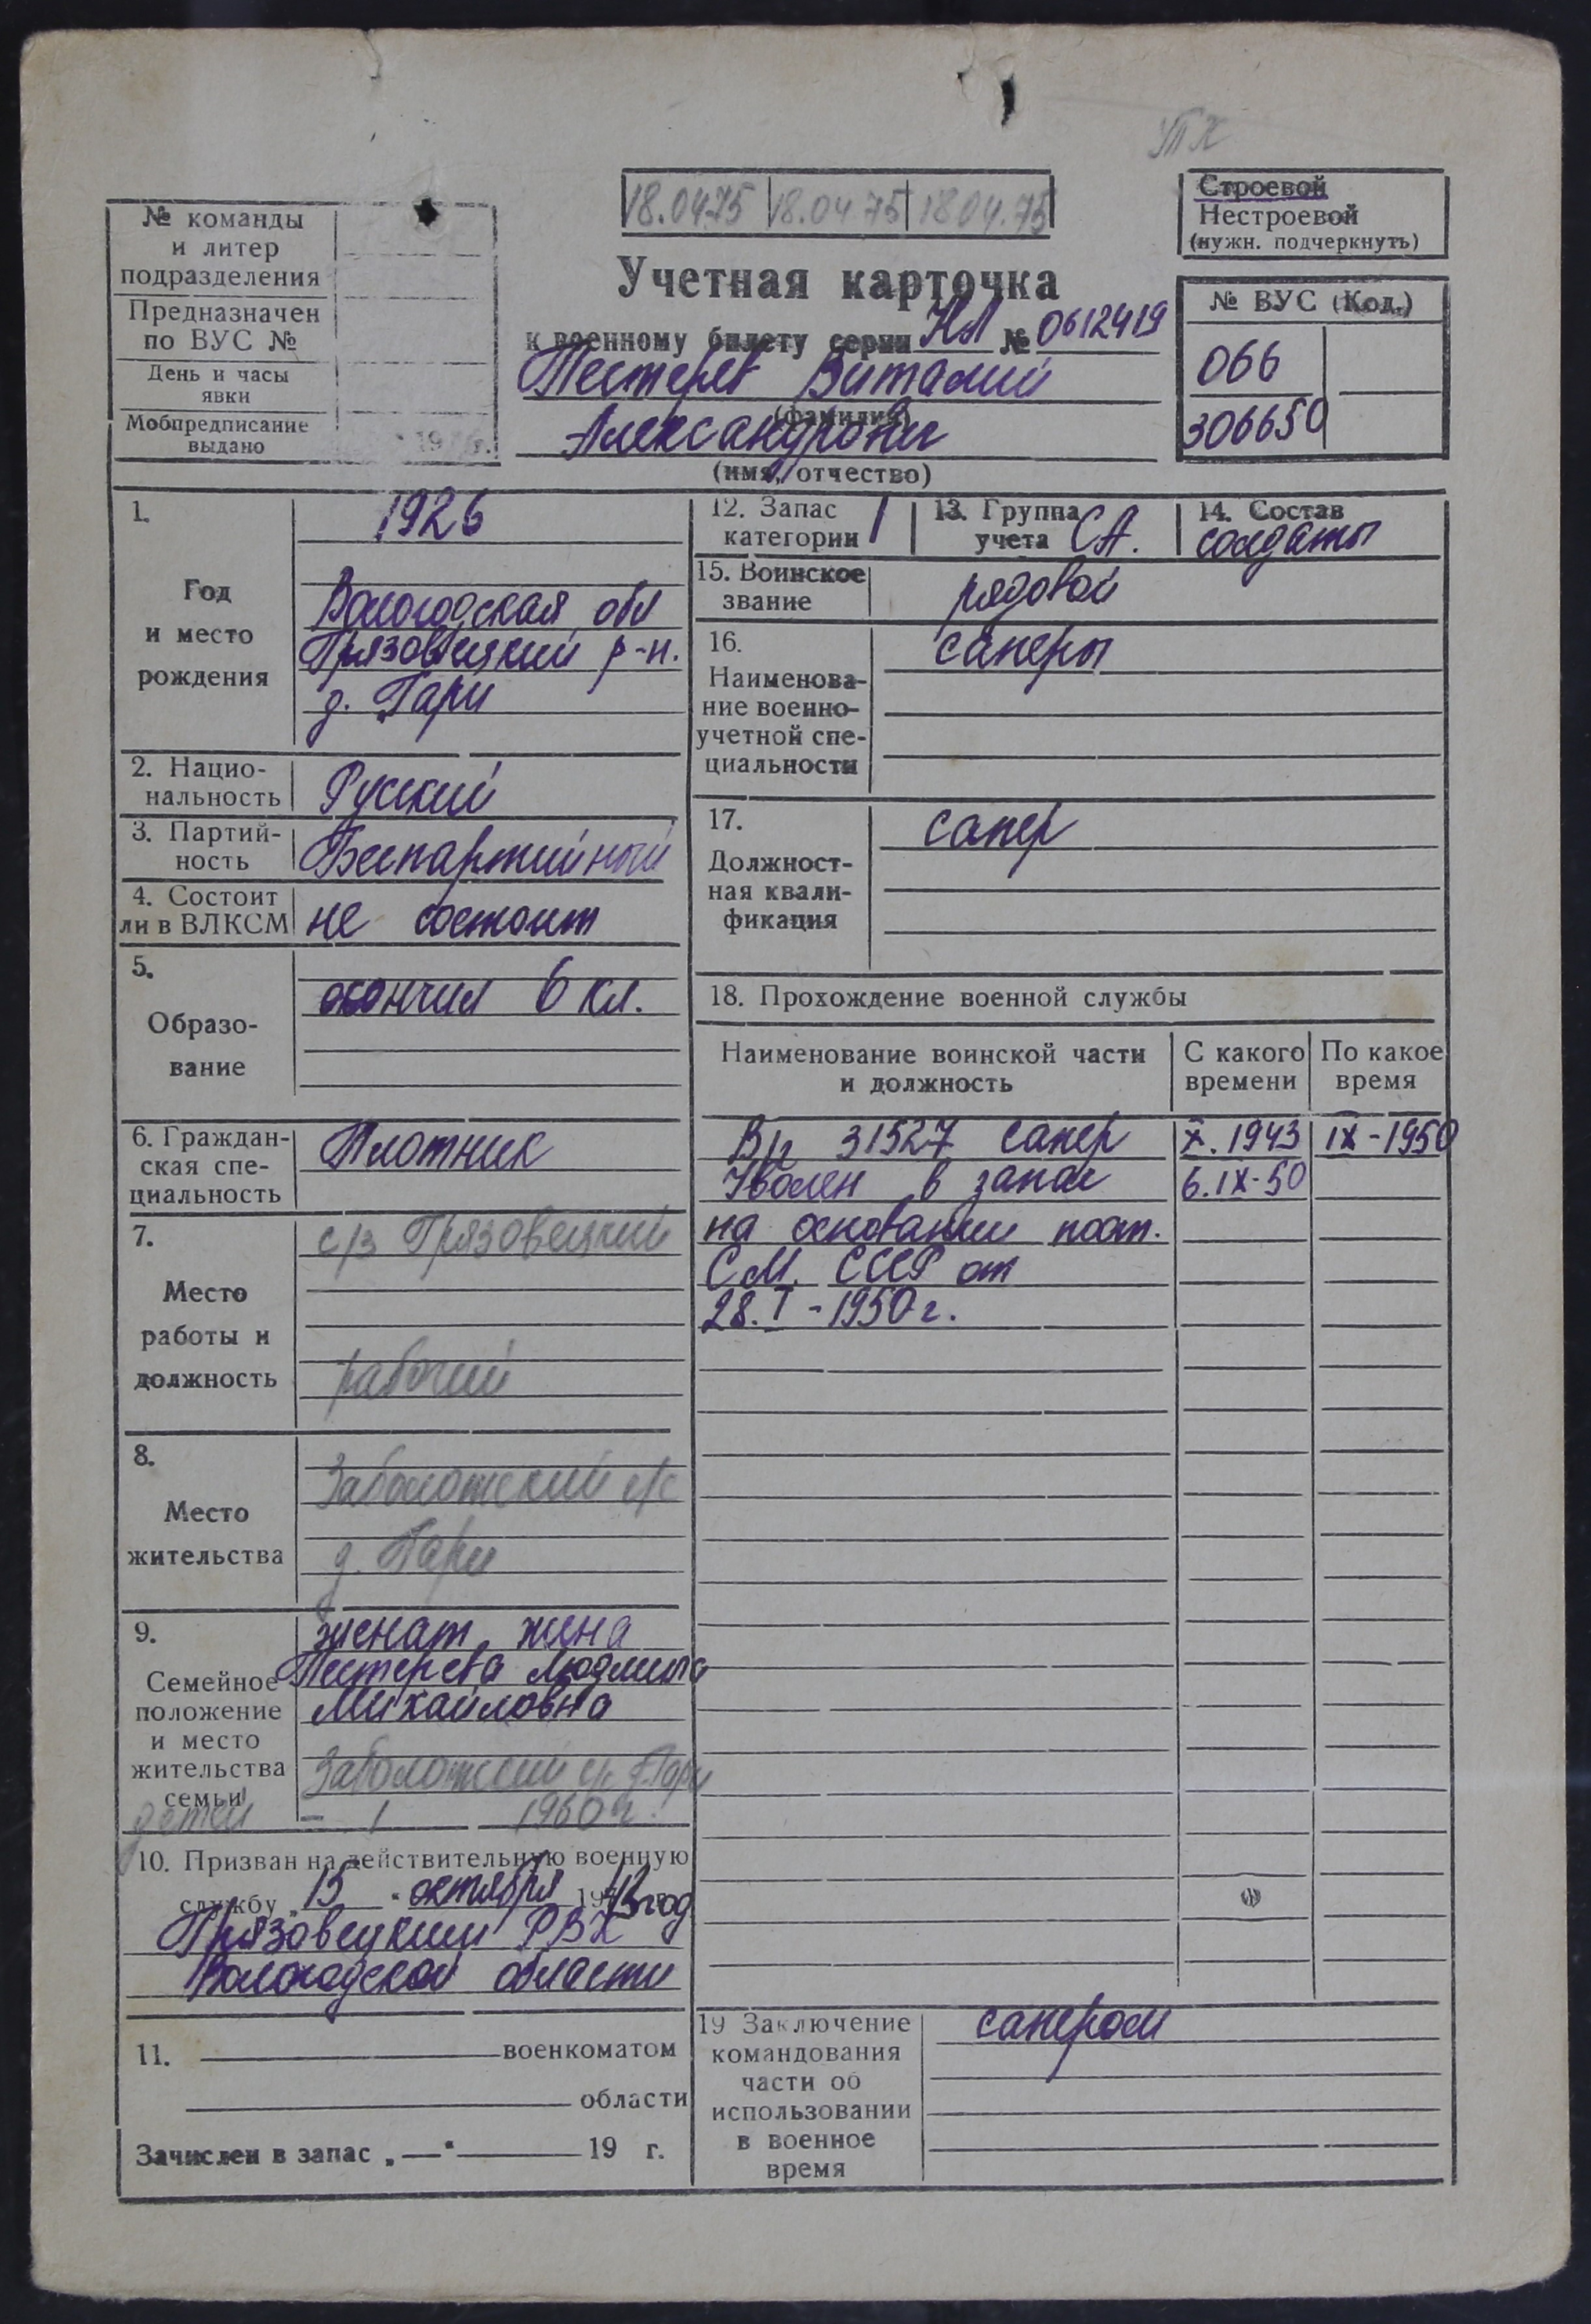 УПК
18.04.75 18.04.75 18.04.75
Строевой
Нестроевой
(нужн. подчеркнуть)
№ команды
и литер
подразделения
Предназначен
по ВУС №
День и часы
явки
Мобпредписание
выдано
19 г.
Учетная карточка
к военному билету серии НЛ № 0612419
Тестерев Виталий
(фамилия)
Александрович
(имя, отчество)
№ ВУС (Код.)
066
306650
1.
Год
и место
рождения
1926
Вологодская обл
Грязовецкий р-н.
д. Гари
2. Нацио-
нальность
Русский
3. Партий-
ность
Беспартийный
4. Состоит
ли в ВЛКСМ
не состоит
5.
Образо-
вание
окончил 6 кл.
6. Граждан-
ская спе-
циальность
Плотник
7.
Место
работы и
должность
с/з Грязовецкий
рабочий
8.
Место
жительства
Заболотский с/с
д. Гари
9.
Семейное
положение
и место
жительства
семьи
женат, жена
Тестерева Людмила
Михайловна
Заболотский с/с д. Гари
детей - 1 1960 г.
10. Призван на действительную военную
службу „15“ октября 1943 год
Грязовецким РВК
Вологодской области
11. военкоматом
области
Зачислен в запас „—“ 19 г.
12. Запас
категории 1
13. Группа
учета СА.
14. Состав
солдаты
15. Воинское
звание
рядовой
16.
Наименова-
ние военно-
учетной спе-
циальности
саперы
17.
Должност-
ная квали-
фикация
сапер
18. Прохождение военной службы
Наименование воинской части
и должность
С какого
времени
По какое
время
В/ч 31527 сапер X. 1943 IX-1950
Уволен в запас 6.IX-50
на основании пост.
С.М. СССР от
28.I-1950 г.
19 Заключение
командования
части об
использовании
в военное
время
сапером